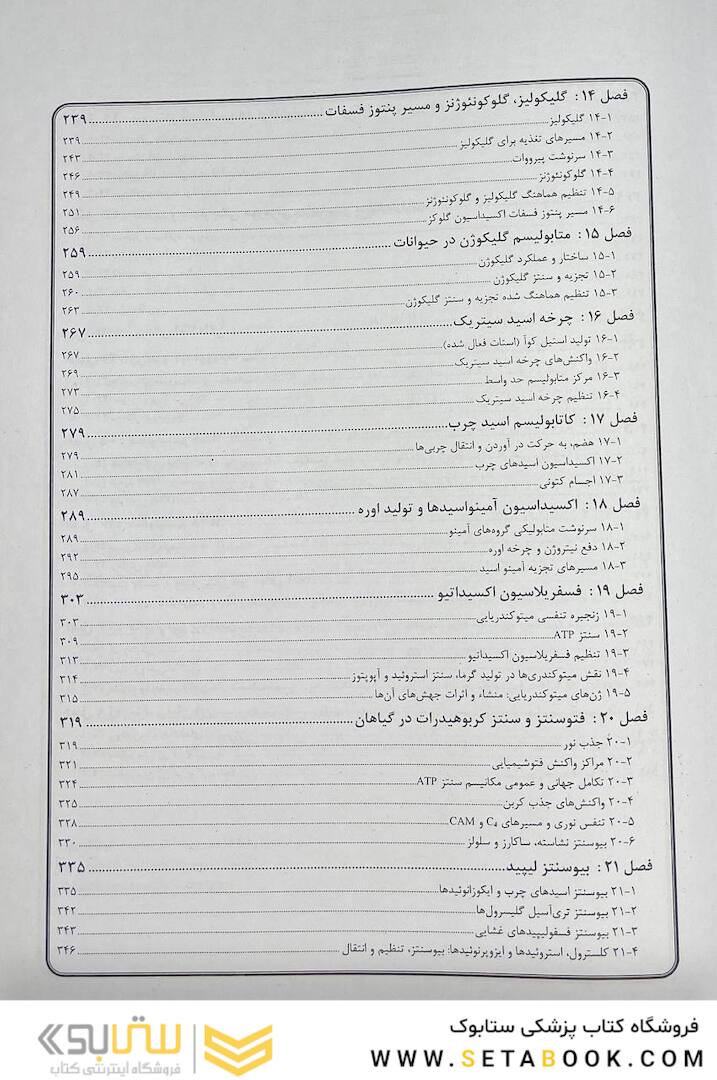 فصل ۱۴: گلیکولیز، گلوکونئوژنز و مسیر پنتوز فسفات ۲۳۹
۱-۱۴ گلیکولیز ۲۳۹
۲-۱۴ مسیرهای تغذیه برای گلیکولیز ۲۴۳
۳-۱۴ سرنوشت پیرووات ۲۴۶
۴-۱۴ گلوکونئوژنز ۲۴۹
۵-۱۴ تنظیم هماهنگ گلیکولیز و گلوکونئوژنز ۲۵۱
۶-۱۴ مسیر پنتوز فسفات اکسیداسیون گلوکز ۲۵۶
فصل ۱۵: متابولیسم گلیکوژن در حیوانات ۲۵۹
۱-۱۵ ساختار و عملکرد گلیکوژن ۲۵۹
۲-۱۵ تجزیه و سنتز گلیکوژن ۲۶۰
۳-۱۵ تنظیم هماهنگ شده تجزیه و سنتز گلیکوژن ۲۶۳
فصل ۱۶: چرخه اسید سیتریک ۲۶۷
۱-۱۶ تولید استیل کوآ (استات فعال شده) ۲۶۷
۲-۱۶ واکنش‌های چرخه اسید سیتریک ۲۶۹
۳-۱۶ مرکز متابولیسم حد واسط ۲۷۳
۴-۱۶ تنظیم چرخه اسید سیتریک ۲۷۵
فصل ۱۷: کاتابولیسم اسید چرب ۲۷۹
۱-۱۷ هضم، به حرکت در آوردن و انتقال چربی‌ها ۲۷۹
۲-۱۷ اکسیداسیون اسیدهای چرب ۲۸۱
۳-۱۷ اجسام کتونی ۲۸۷
فصل ۱۸: اکسیداسیون آمینواسیدها و تولید اوره ۲۸۹
۱-۱۸ سرنوشت متابولیکی گروه‌های آمینو ۲۸۹
۲-۱۸ دفع نیتروژن و چرخه اوره ۲۹۲
۳-۱۸ مسیرهای تجزیه آمینو اسید ۲۹۵
فصل ۱۹: فسفریلاسیون اکسیداتیو ۳۰۳
۱-۱۹ زنجیره تنفسی میتوکندریایی ۳۰۳
۲-۱۹ سنتز ATP ۳۰۹
۳-۱۹ تنظیم فسفریلاسیون اکسیداتیو ۳۱۳
۴-۱۹ نقش میتوکندری‌ها در تولید گرما، سنتز استروئید و آپوپتوز ۳۱۴
۵-۱۹ ژن‌های میتوکندریایی: منشاء و اثرات جهش‌های آن‌ها ۳۱۵
فصل ۲۰: فتوسنتز و سنتز کربوهیدرات در گیاهان ۳۱۹
۱-۲۰ جذب نور ۳۱۹
۲-۲۰ مراکز واکنش فتوشیمیایی ۳۲۱
۳-۲۰ تکامل جهانی و عمومی مکانیسم سنتز ATP ۳۲۴
۴-۲۰ واکنش‌های جذب کربن ۳۲۵
۵-۲۰ تنفس نوری و مسیرهای C₄ و CAM ۳۲۸
۶-۲۰ بیوسنتز نشاسته، ساکارز و سلولز ۳۳۰
فصل ۲۱: بیوسنتز لیپید ۳۳۵
۱-۲۱ بیوسنتز اسیدهای چرب و ایکوزانوئیدها ۳۳۵
۲-۲۱ بیوسنتز تری‌آسیل گلیسرول‌ها ۳۴۲
۳-۲۱ بیوسنتز فسفولیپیدهای غشایی ۳۴۳
۴-۲۱ کلسترول، استروئیدها و ایزوپرنوئیدها: بیوسنتز، تنظیم و انتقال ۳۴۶
فروشگاه کتاب پزشکی ستابوک
WWW.SETABOOK.COM
ستابوک
فروشگاه اینترنتی کتاب